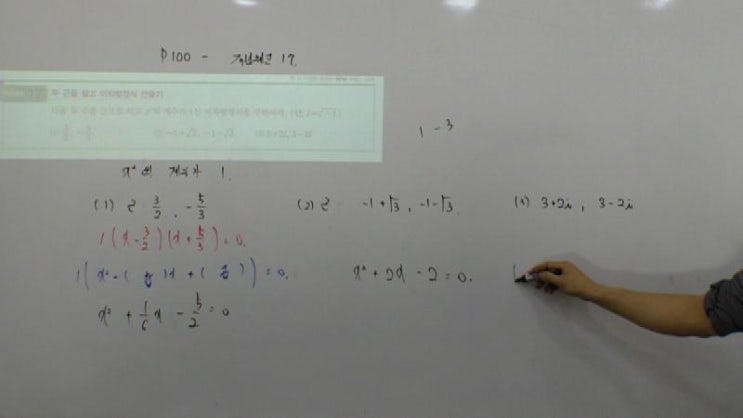 P100 -
두 근을 알고 이차방정식 만들기
다음 두 수를 근으로 하고 x²의 계수가 1인 이차방정식을 구하여라. (단, i=√-1)
(1) 3/2, -5/3 (2) -1+√3, -1-√3 (3) 3+2i, 3-2i
1 - 3
x²의 계수가 1.
(1) 근 3/2, -5/3 (2) 근 -1+√3, -1-√3. (3) 3+2i, 3-2i
1(x-3/2)(x+5/3)=0.
1(x²-( 합 )x+( 곱 ))=0. x²+2x-2=0.
x²+1/6x-5/2=0